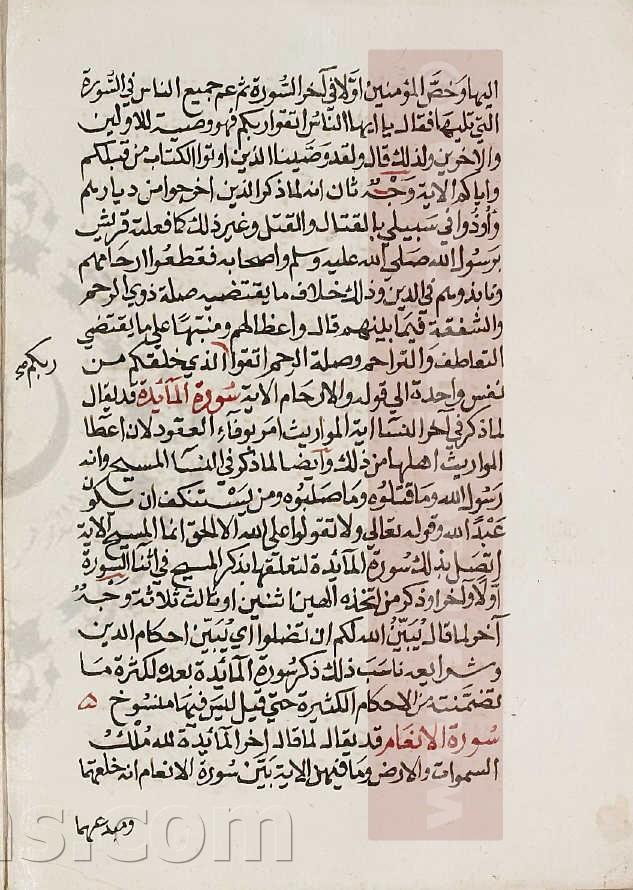 اليها وخص المؤمنين اولا في آخر السورة ثم عم جميع الناس في السورة
التي تليها فقال يا ايها الناس اتقوا ربكم فهو وصية للاولين
والاخرين ولذلك قال ولقد وصينا الذين اوتوا الكتاب من قبلكم
واياكم الاية وجه ثان انه لما ذكر الذين اخرجوا من ديارهم
وأوذوا في سبيلي بالقتال والقتل وغير ذلك كما فعلته قريش
برسول الله صلى الله عليه وسلم واصحابه فقطعوا ارحامهم
ونابذوهم في الدين وذلك خلاف ما يقتضيه صلة ذوي الرحم
والشفقة فيما بينهم قال واعظا لهم ومنبها على ما يقتضي
التعاطف والتراحم وصلة الرحم اتقوا الذي خلقكم من
ربكم صح
نفس واحدة الي قوله والارحام الاية سورة المآئدة قد يقال
لما ذكر في آخر النسآ اية المواريث امر بوفآء العقود لان اعطا
المواريث اهلها من ذلك وأيضا لما ذكر في النسآ المسيح وانه
رسول الله وما قتلوه وما صلبوه ومن يستنكف ان يكون
عبدا لله وقوله تعالي ولا تقولوا علي الله الا الحق انما المسيح الآية
اتصل بذلك سورة المآئدة لتعلقها بذكر المسيح في اثنا السورة
أولا وآخرا وذكر من اتخذه الهين اثنين او ثالث ثلاثة وجه
آخر لما قال يبين الله لكم ان تضلوا أي يبين احكام الدين
وشرايعه ناسب ذلك ذكر سورة المآئدة بعده لكثرة ما
تضمنته من الاحكام الكثيرة حتي قيل ليس فيها منسوخ ه
سورة الانعام قد يقال لما قال اخر المائدة لله ملك
السموات والارض وما فيهن الاية بين سورة الانعام انه خلقهما
ومبدعهما
ns.com